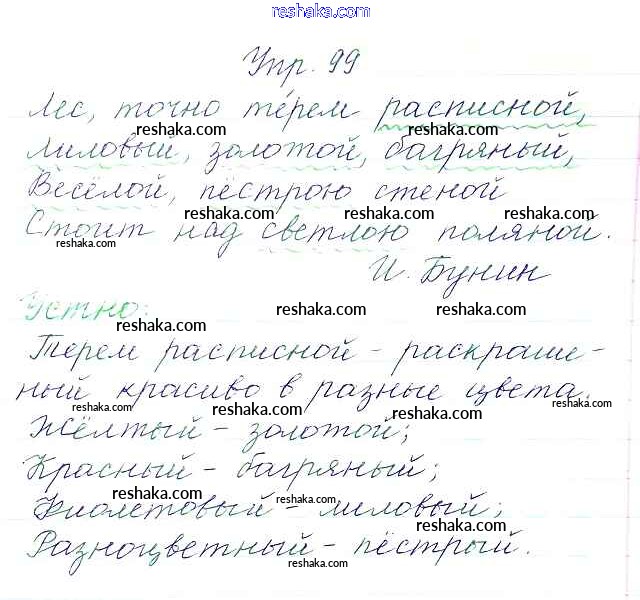 reshaka.com
Упр. 99
Лес, точно те́рем расписной,
reshaka.com reshaka.com
Лиловый, золотой, багряный,
Весёлой, пёстрою стеной
reshaka.com reshaka.com reshaka.com
Стоит над светлою поляной.
reshaka.com
И. Бунин
Устно:
reshaka.com reshaka.com
reshaka.com
Терем расписной - раскраше-
ный красиво в разные цвета.
reshaka.com reshaka.com reshaka.com reshaka.com
Жёлтый - золотой;
Красный - багряный;
reshaka.com reshaka.com
Фиолетовый - лиловый;
reshaka.com
Разноцветный - пёстрый.
reshaka.com